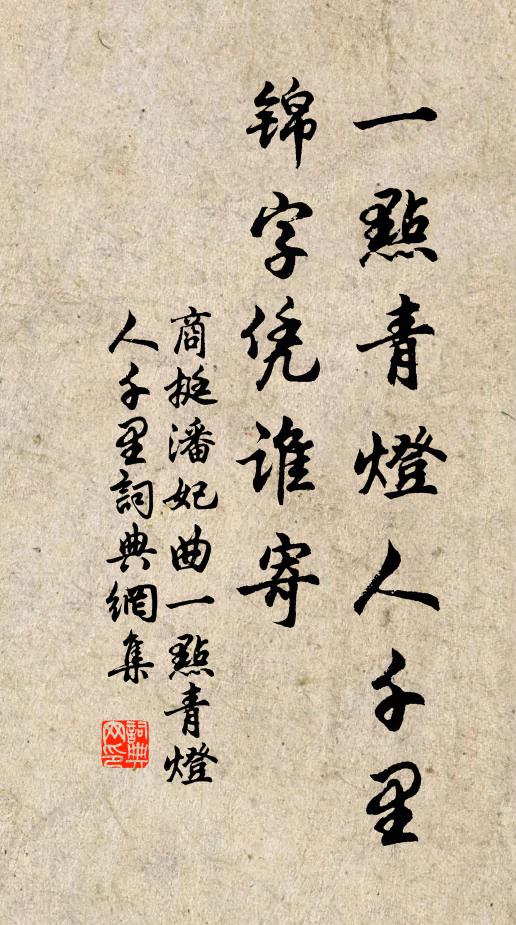 一點青燈人千里
锦字凭谁寄
商挺潘妃曲一點青燈
人千里詞典網集
詞典网印